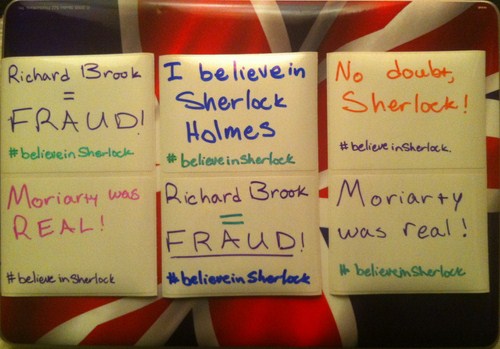 Richard Brook
=
FRAUD!
#believeinSherlock
I believe in
Sherlock
Holmes
#believeinSherlock
No doubt,
Sherlock!
#believeinSherlock.
Moriarty was
REAL!
#believeinSherlock
Richard Brook
=
FRAUD!
#believeinSherlock
Moriarty
was real!
#believeinSherlock